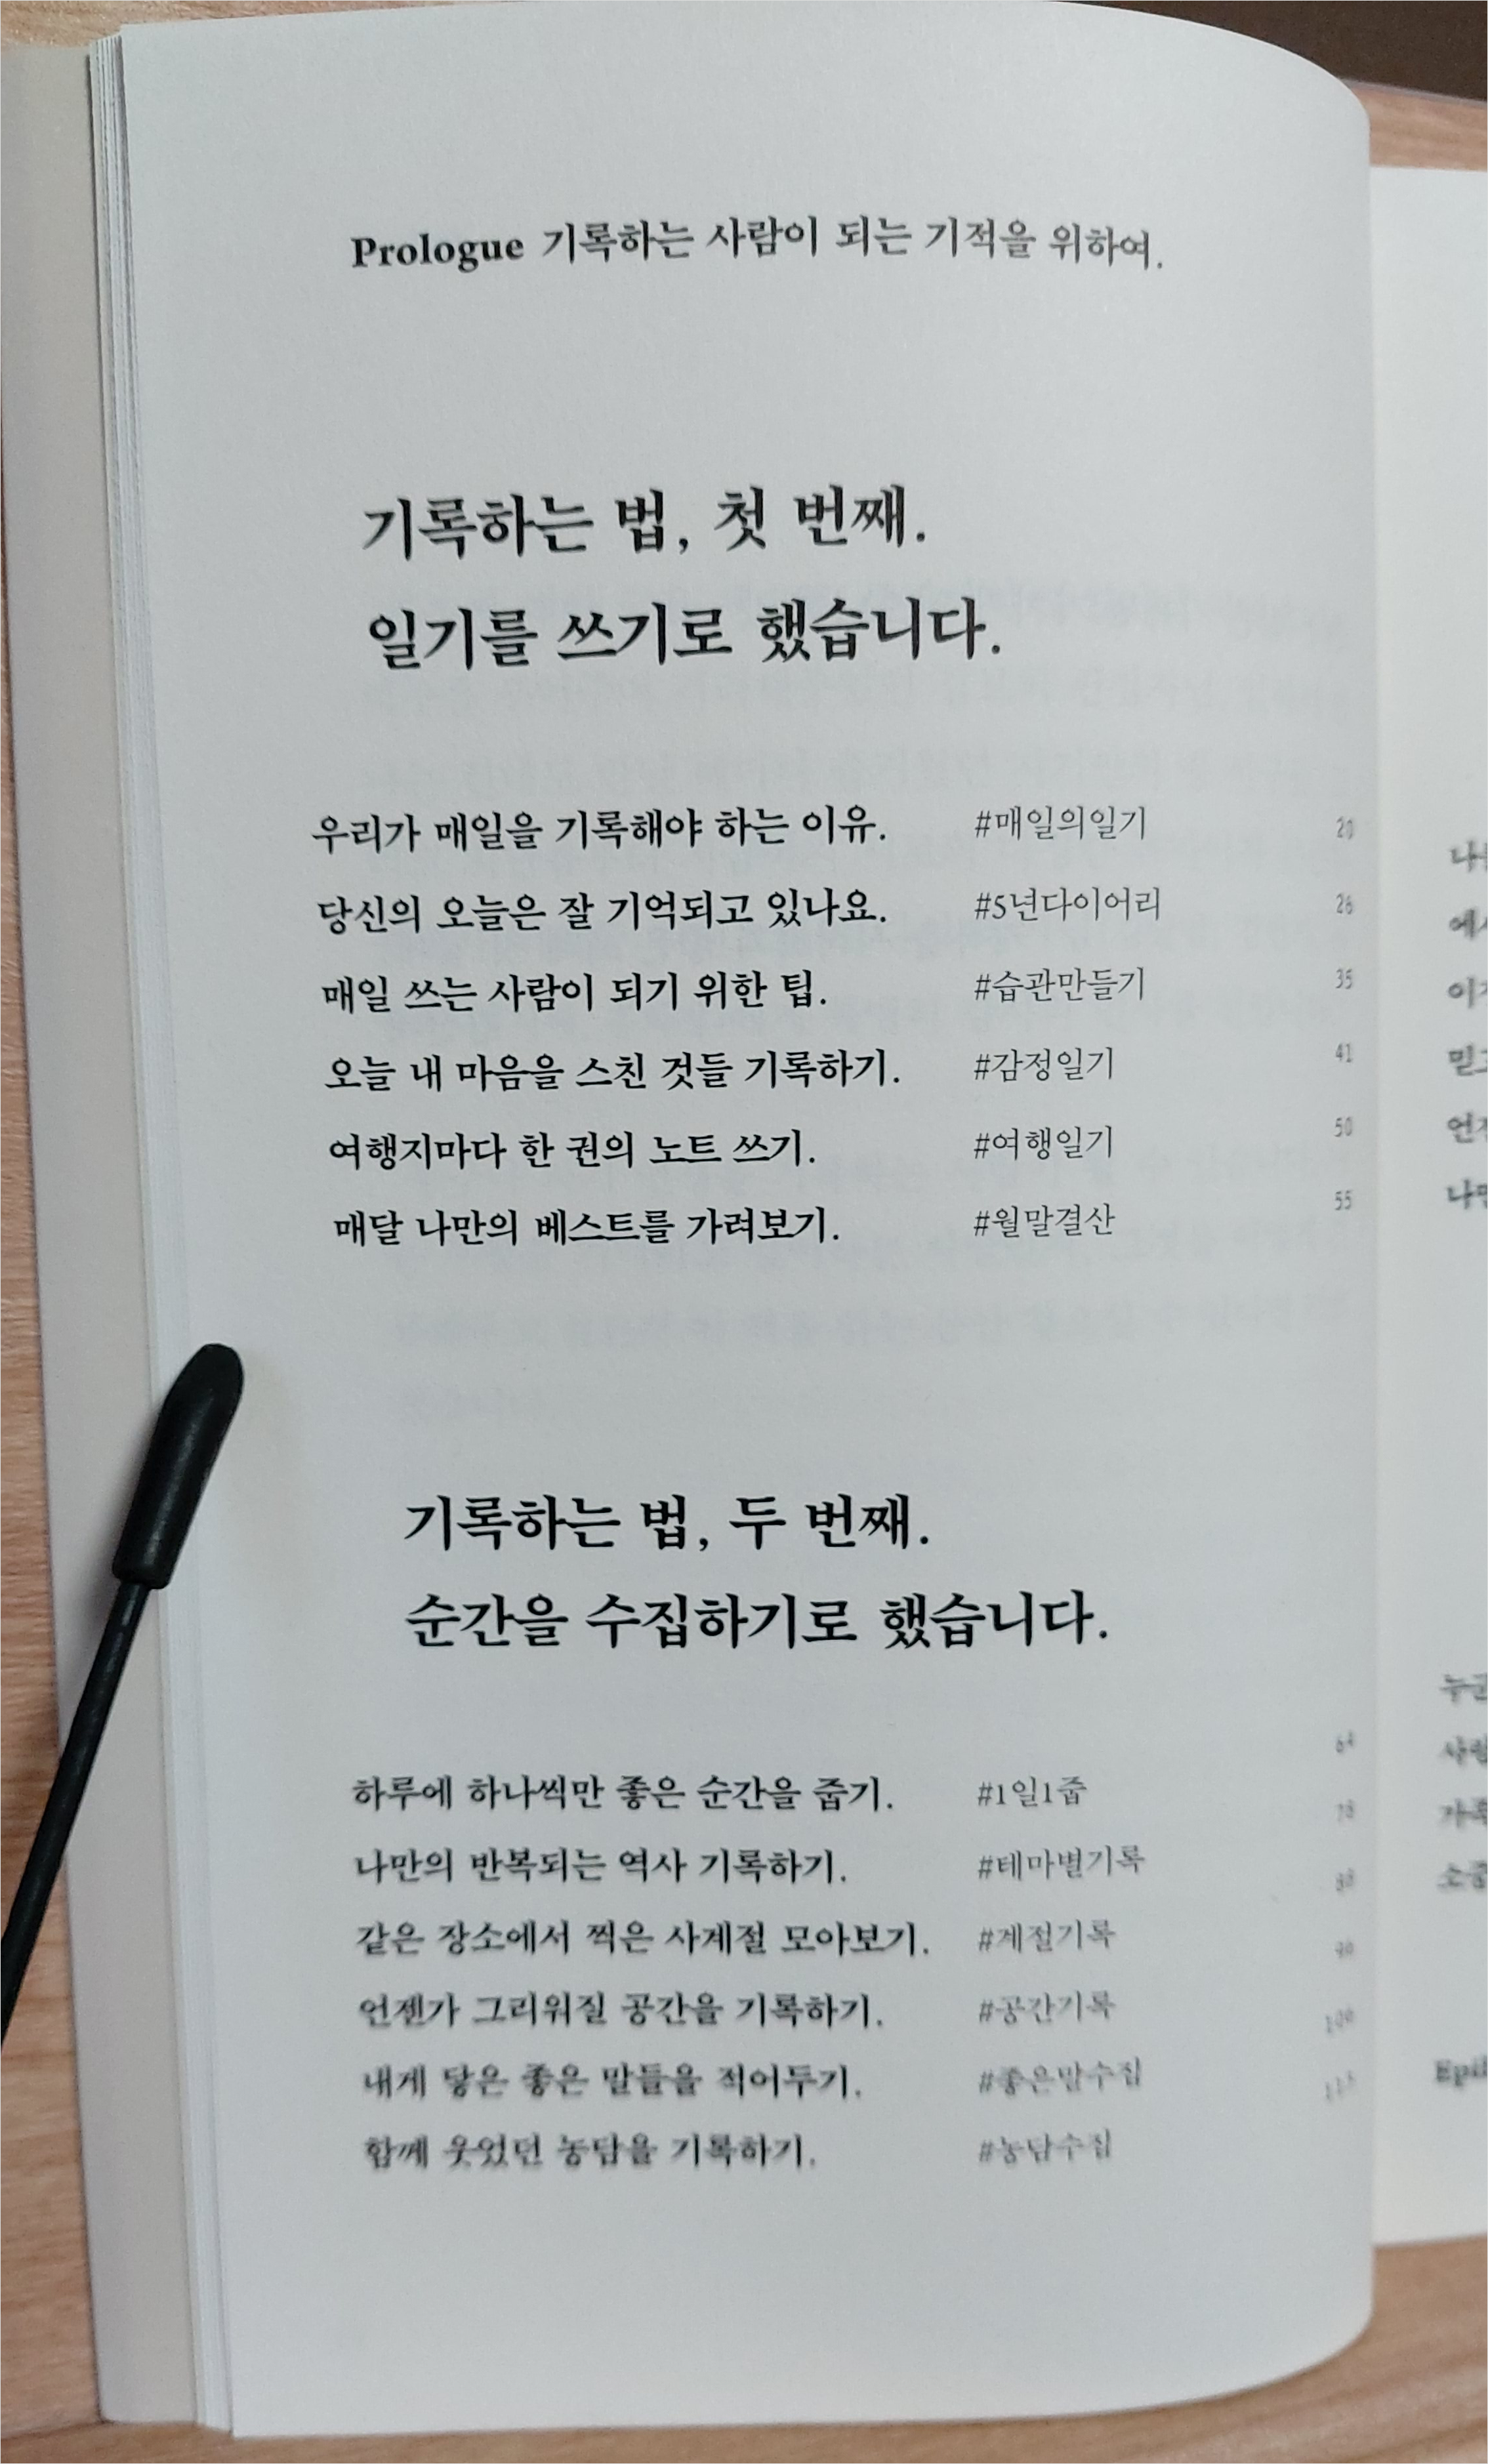 Prologue 기록하는 사람이 되는 기적을 위하여.
기록하는 법, 첫 번째.
일기를 쓰기로 했습니다.
우리가 매일을 기록해야 하는 이유. #매일의일기 20
당신의 오늘은 잘 기억되고 있나요. #5년다이어리 26
매일 쓰는 사람이 되기 위한 팁. #습관만들기 35
오늘 내 마음을 스친 것들 기록하기. #감정일기 41
여행지마다 한 권의 노트 쓰기. #여행일기 50
매달 나만의 베스트를 가려보기. #월말결산 55
기록하는 법, 두 번째.
순간을 수집하기로 했습니다.
하루에 하나씩만 좋은 순간을 줍기. #1일1줍 64
나만의 반복되는 역사 기록하기. #테마별기록
같은 장소에서 찍은 사계절 모아보기. #계절기록
언젠가 그리워질 공간을 기록하기. #공간기록
내게 닿은 좋은 말들을 적어두기. #좋은말수집
함께 웃었던 농담을 기록하기. #농담수집